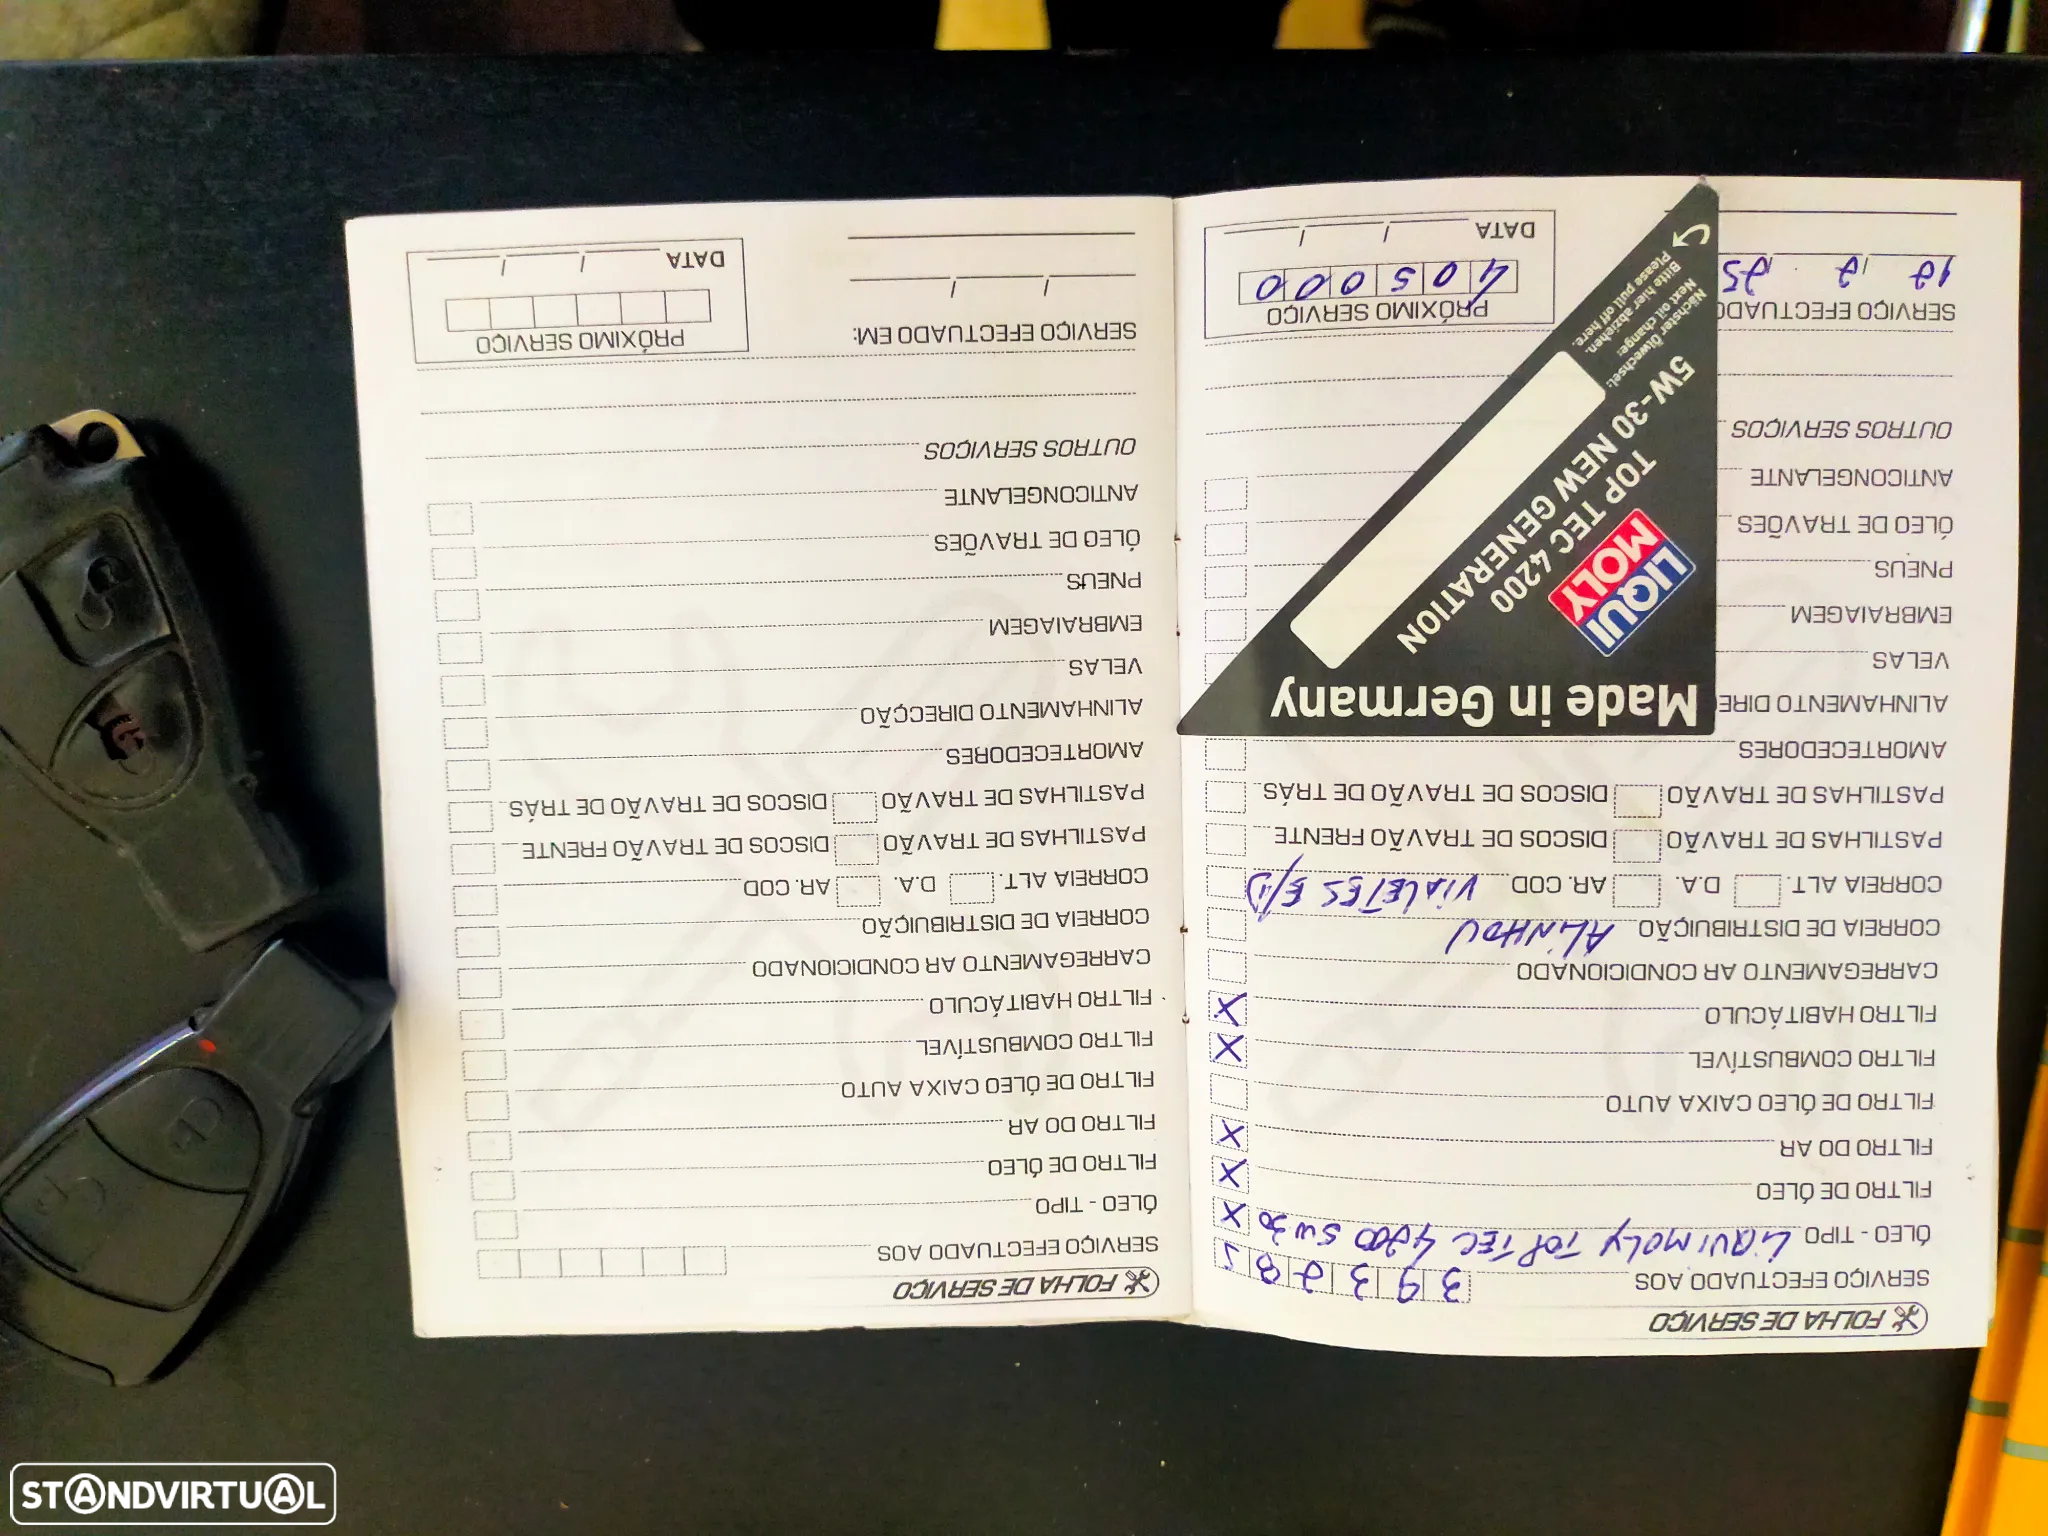 FOLHA DE SERVIÇO
SERVIÇO EFECTUADO AOS 393285
ÓLEO - TIPO LIQUIMOLY TOPTEC 4200 5W30 X
FILTRO DE ÓLEO X
FILTRO DO AR X
FILTRO DE ÓLEO CAIXA AUTO
FILTRO COMBUSTÍVEL X
FILTRO HABITÁCULO X
CARREGAMENTO AR CONDICIONADO
CORREIA DE DISTRIBUIÇÃO ALINHOU
CORREIA ALT. D.A. AR. COD VIALETES E/D
PASTILHAS DE TRAVÃO DISCOS DE TRAVÃO FRENTE
PASTILHAS DE TRAVÃO DISCOS DE TRAVÃO DE TRÁS
AMORTECEDORES
ALINHAMENTO DIRE
VELAS
EMBRAIAGEM
PNEUS
ÓLEO DE TRAVÕES
ANTICONGELANTE
OUTROS SERVIÇOS
SERVIÇO EFECTUADO
PRÓXIMO SERVIÇO
405000
DATA / /
Made in Germany
LIQUI
MOLY
TOP TEC 4200
5W-30 NEW GENERATION
Nächster Ölwechsel:
Next oil change:
Bitte hier abziehen.
Please pull off here.
FOLHA DE SERVIÇO
SERVIÇO EFECTUADO AOS
ÓLEO - TIPO
FILTRO DE ÓLEO
FILTRO DO AR
FILTRO DE ÓLEO CAIXA AUTO
FILTRO COMBUSTÍVEL
FILTRO HABITÁCULO
CARREGAMENTO AR CONDICIONADO
CORREIA DE DISTRIBUIÇÃO
CORREIA ALT. D.A. AR. COD
PASTILHAS DE TRAVÃO DISCOS DE TRAVÃO FRENTE
PASTILHAS DE TRAVÃO DISCOS DE TRAVÃO DE TRÁS
AMORTECEDORES
ALINHAMENTO DIRECÇÃO
VELAS
EMBRAIAGEM
PNEUS
ÓLEO DE TRAVÕES
ANTICONGELANTE
OUTROS SERVIÇOS
SERVIÇO EFECTUADO EM:
/ /
PRÓXIMO SERVIÇO
DATA / /
STANDVIRTUAL